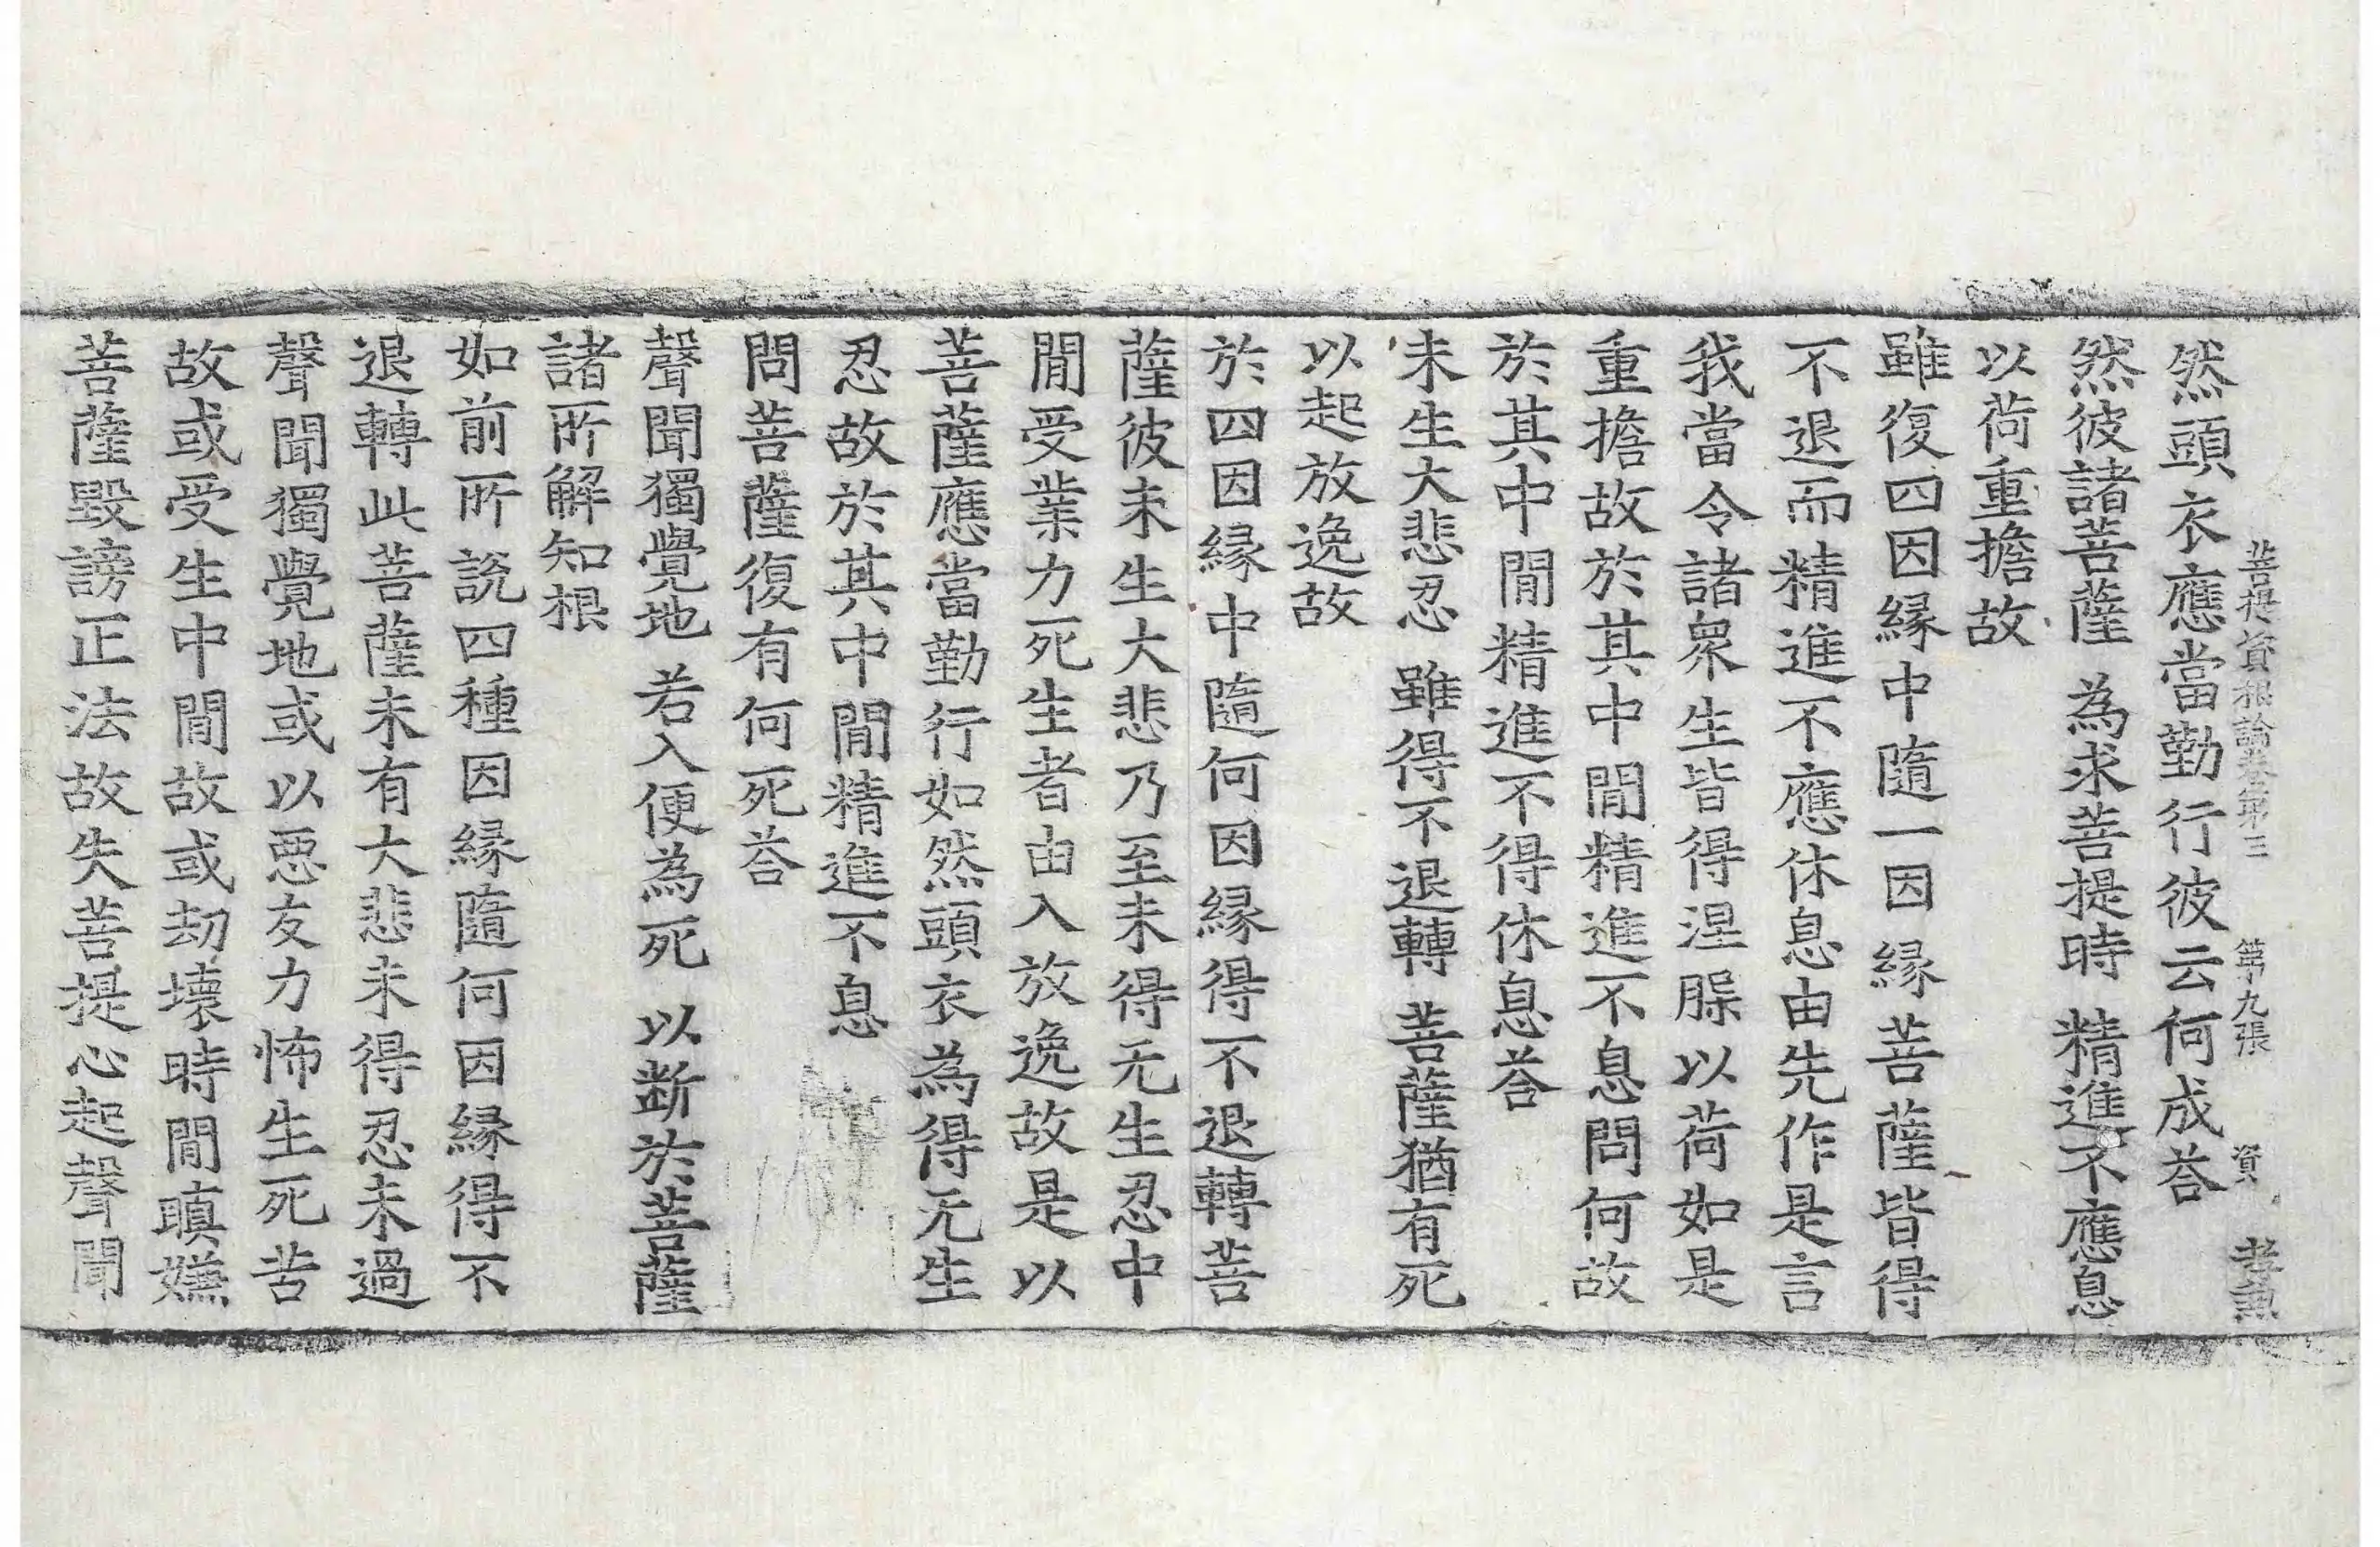 菩提資粮論卷第三　第十九張　資　孝兼
然頭衣應當勤行彼云何成荅
然彼諸菩薩　為求菩提時　精進不應息
以荷重擔故
雖復四因緣中隨一因緣菩薩皆得
不退而精進不應休息由先作是言
我當令諸衆生皆得涅脲以荷如是
重擔故於其中閒精進不息問何故
於其中閒精進不得休息荅
未生大悲忍　雖得不退轉　菩薩猶有死
以起放逸故
於四因緣中隨何因緣得不退轉菩
薩彼未生大悲乃至未得无生忍中
閒受業力死生者由入放逸故是以
菩薩應當勤行如然頭衣為得无生
忍故於其中閒精進不息
問菩薩復有何死荅
聲聞獨覺地　若入便為死　以断於菩薩
諸所解知根
如前所說四種因緣隨何因緣得不
退轉此菩薩未有大悲未得忍未過
聲聞獨覺地或以惡友力怖生死苦
故或受生中閒故或劫壞時閒瞋嫌
菩薩毀謗正法故失菩提心起聲聞